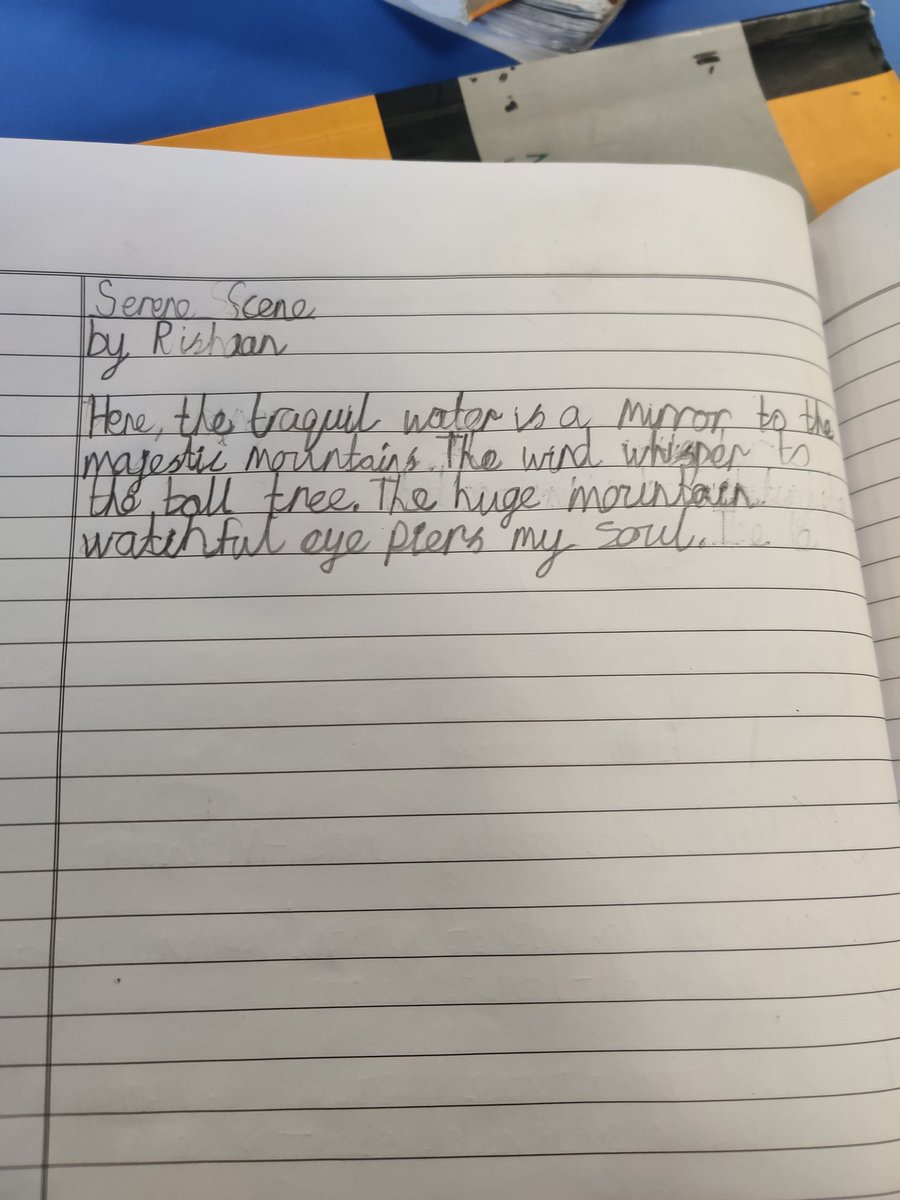 Serene Scene
by Rishaan
Here, the traquil water is a mirror to the
majestic mountains. The wind whisper to
the tall tree. The huge mountain
watchful eye piers my soul.